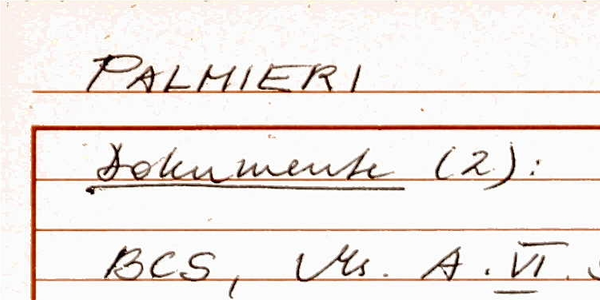 PALMIERI
Dokumente (2):
BCS, Ms. A. VI.